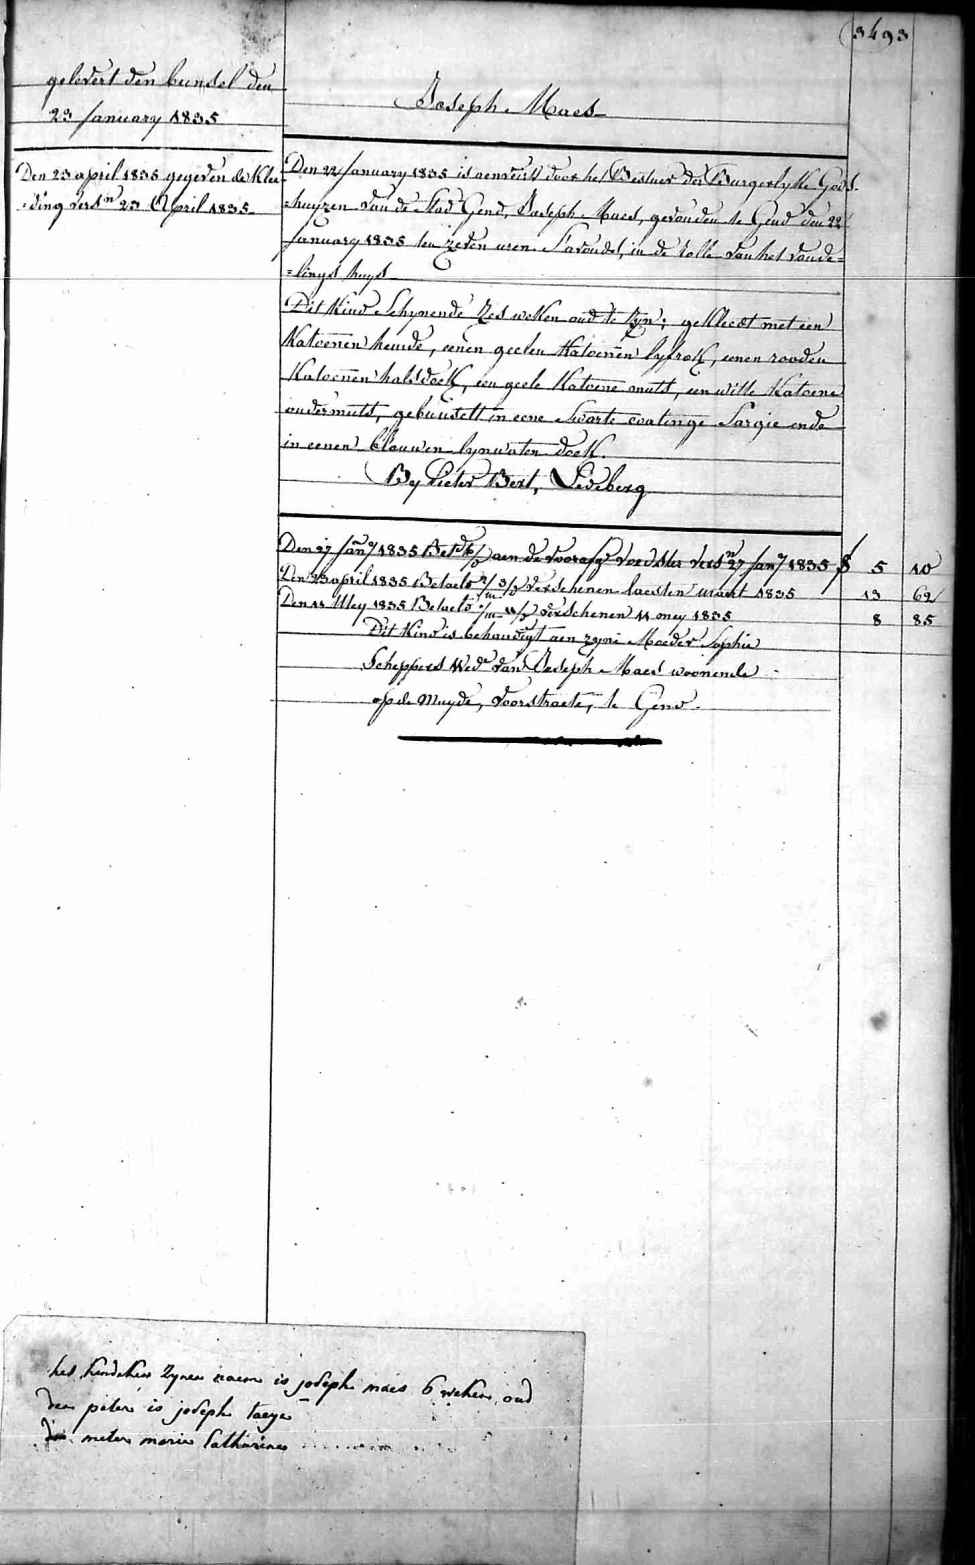 3493
gelevert den bundel den
23 January 1835
Joseph Maes
Den 23 april 1835 gegeven de Klee-
=ding vers.n 23 April 1835.
Den 22 January 1835 is aenveird door het Bestuer der Burgerlyke Gods-
=huyzen van de Stad Gend, Joseph Maes, gevonden te Gend den 22
January 1835 ten zeven uren S'avonds, in de rolle van het vonde-
=lings huys
Dit Kind Schynende Zes weken oud te zyn; gekleedt met een
Katoenen hemde, eenen geelen Katoenen lyfrok, eenen rooden
Katoenen halsdoek, een geele Katoene muts, een witte Katoene
ondermuts, gebusselt in eene Swarte coatinge Sargie ende
in eenen blauwen lynwaten doek.
By Pieter Bert, Ledeberg
Den 27 Jan.y 1835 Bet. aen de voorafg.e voedster vers.n 27 Jan.y 1835 5 10
Den 23 april 1835 Betaelt verschenen laesten maert 1835 13 62
Den 11 Mey 1835 Betaelt verschenen 11 mey 1835 8 85
Dit Kind is behandigt aen zyne Moeder Sophie
Scheppers Wed.e van Joseph Maes woonende
op de Muyde, Voorstraete, te Gend.
het kindeken Zynen naem is joseph maes 6 weken oud
den peter is joseph taeye
die meter marie Catharine